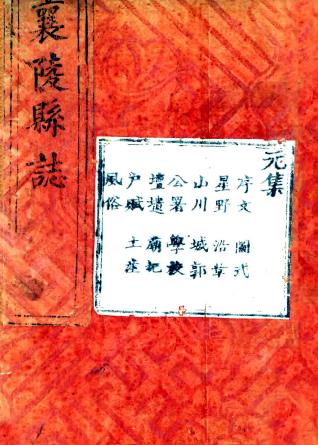 襄陵縣誌
元集
序文 圖式
星野 沿革
山川 城郭
公署 學校
壇壝 廟祀
戶賦 土産
風俗